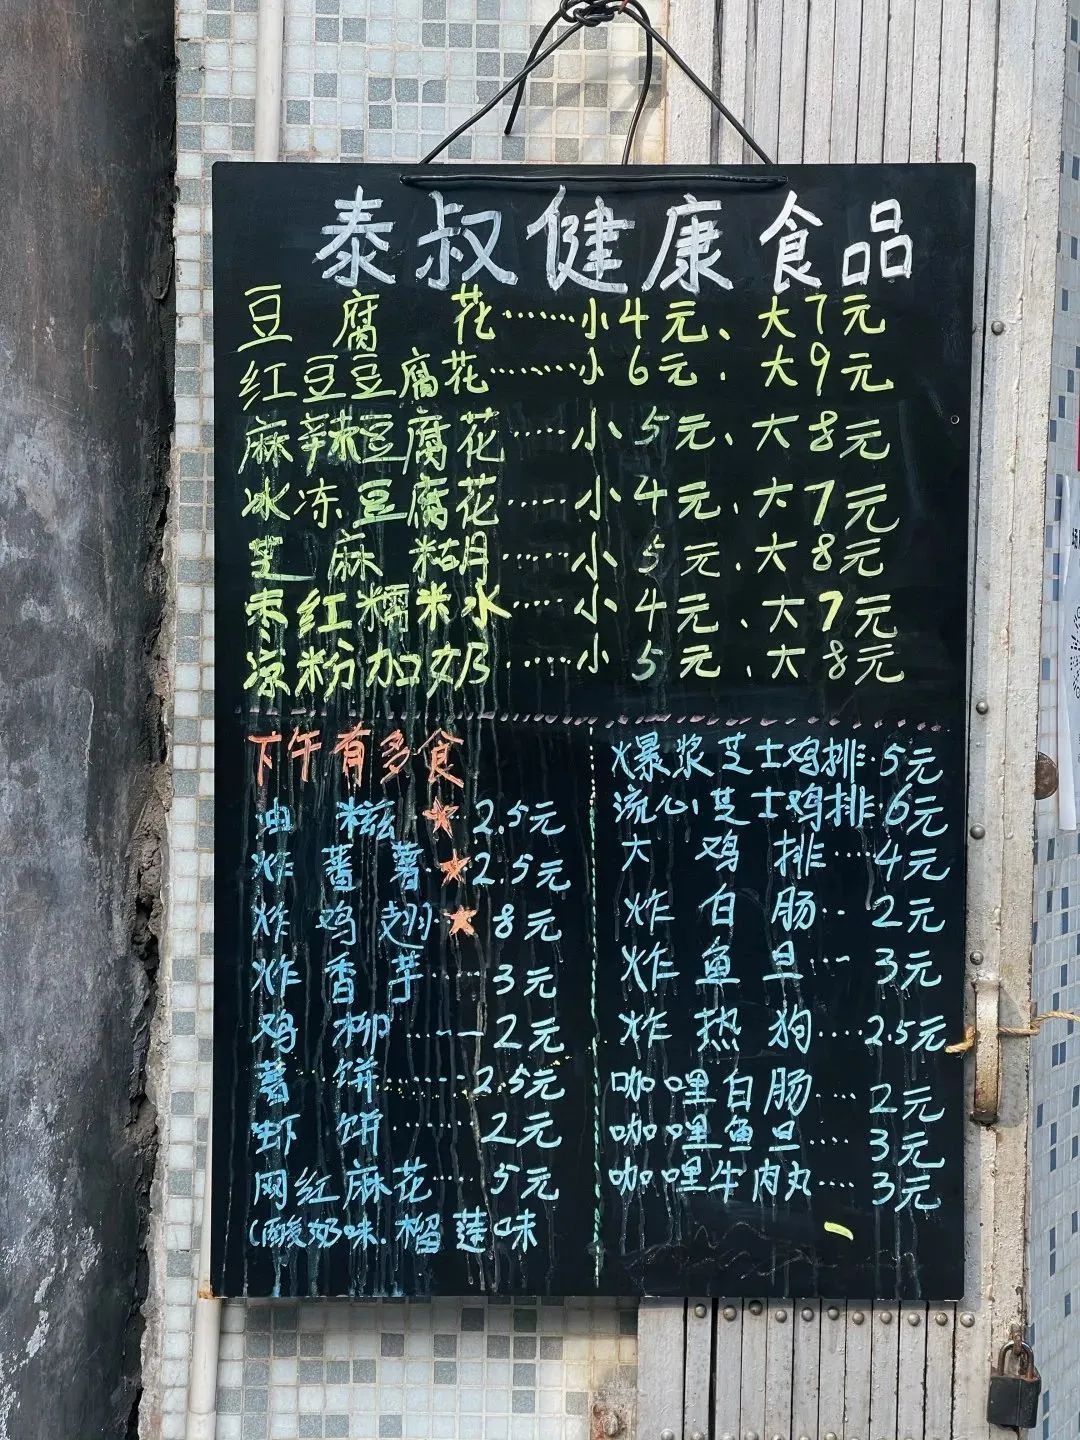 泰叔健康食品
豆腐花……小4元、大7元
红豆豆腐花……小6元.大9元
麻辣豆腐花……小5元、大8元
冰冻豆腐花……小4元、大7元
芝麻糊……小5元.大8元
枣红糯米水……小4元、大7元
凉粉加奶……小5元、大8元
下午有多食
油糍★2.5元
炸蕃薯★2.5元
炸鸡翅★8元
炸香芋……3元
鸡柳……2元
薯饼……2.5元
虾饼……2元
网红麻花……5元
(酸奶味.榴莲味
爆浆芝士鸡排·5元
流心芝士鸡排·6元
大鸡排……4元
炸白肠……2元
炸鱼旦……3元
炸热狗……2.5元
咖哩白肠……2元
咖哩鱼旦……3元
咖哩牛肉丸……3元